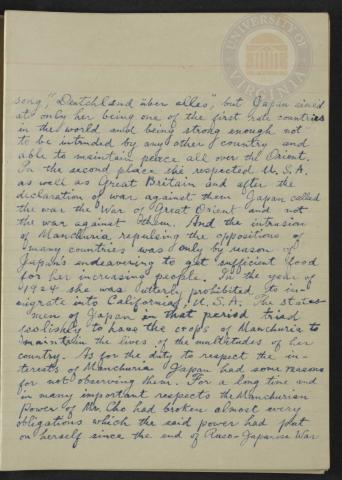 UNIVERSITY OF VIRGINIA
song, "Deutchland über alles", but Japan aimed
at only her being one of the first rate countries
in the world and being strong enough not
to be intruded by any other country and
able to maintain peace all over the Orient.
In the second place she respected U.S.A.
as well as Great Britain and after the
declaration of war against them Japan called
the war the War of Great Orient and not
the war against them. And the intrusion
of Manchuria repulsing the oppositions of
many countries was only by reason of
Japan's endeavoring to get sufficient food
for her increasing people. In the year of
1924 she was utterly prohibited to im-
migrate into California, U.S.A. The states-
men of Japan in that period tried
foolishly to have the coops of Manchuria to
maintain the lives of the multitudes of her
country. As for the duty to respect the in-
terests of Manchuria Japan had some reasons
for not observing them. For a long time and
in many important respects the Manchurian
Power of Mr. Cho had broken almost every
obligations which the said power had put
on herself since the end of Russo-Japanese War